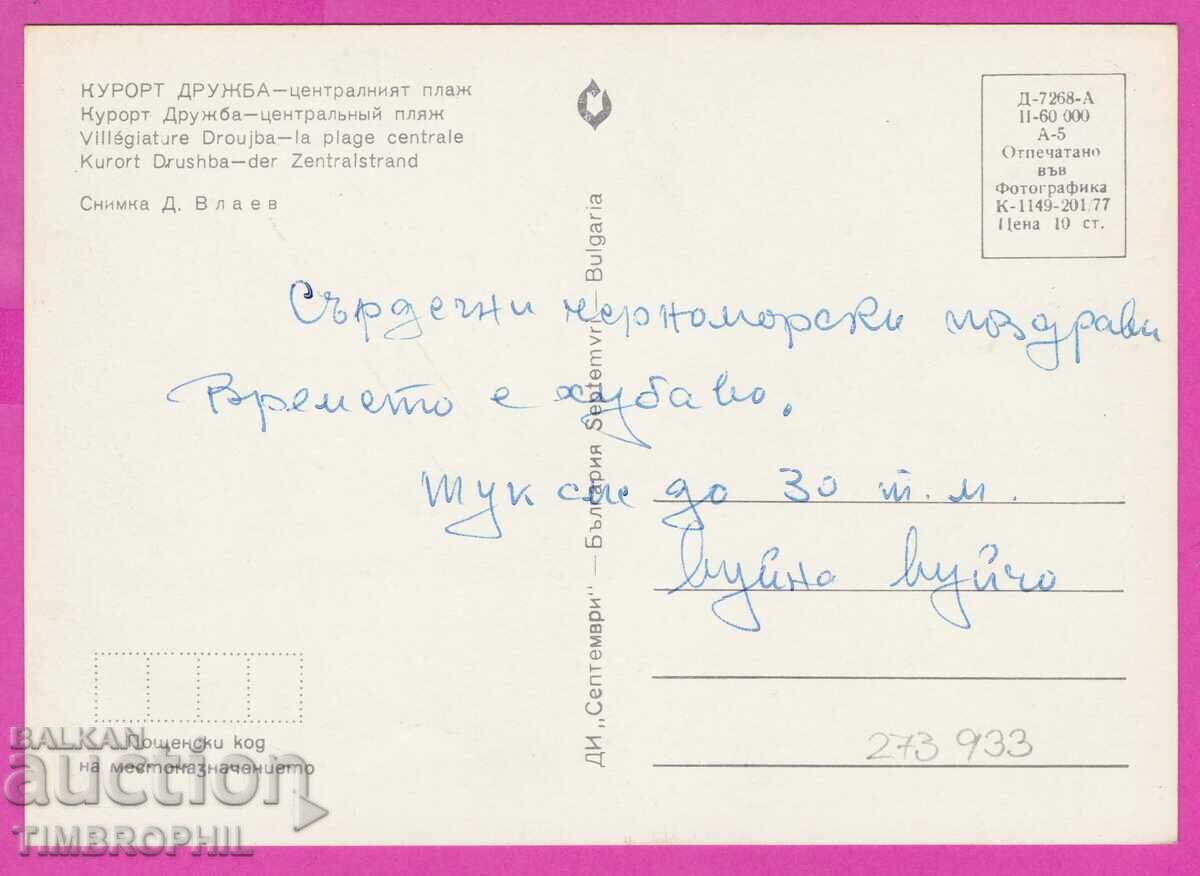 КУРОРТ ДРУЖБА—централният плаж
Курорт Дружба—центральный пляж
Villégiature Droujba—la plage centrale
Kurort Drushba—der Zentralstrand
Снимка Д. Влаев
Д-7268-А
II-60 000
А-5
Отпечатано
във
Фотографика
К-1149-201/77
Цена 10 ст.
Сърдечни черноморски поздрави
Времето е хубаво.
Тук сме до 30 т.м.
Вуйна Вуйчо
ДИ „Септември" — България Septemvri — Bulgaria
Пощенски код
на местоназначението
273 933
BALKAN
auction
TIMBROPHIL